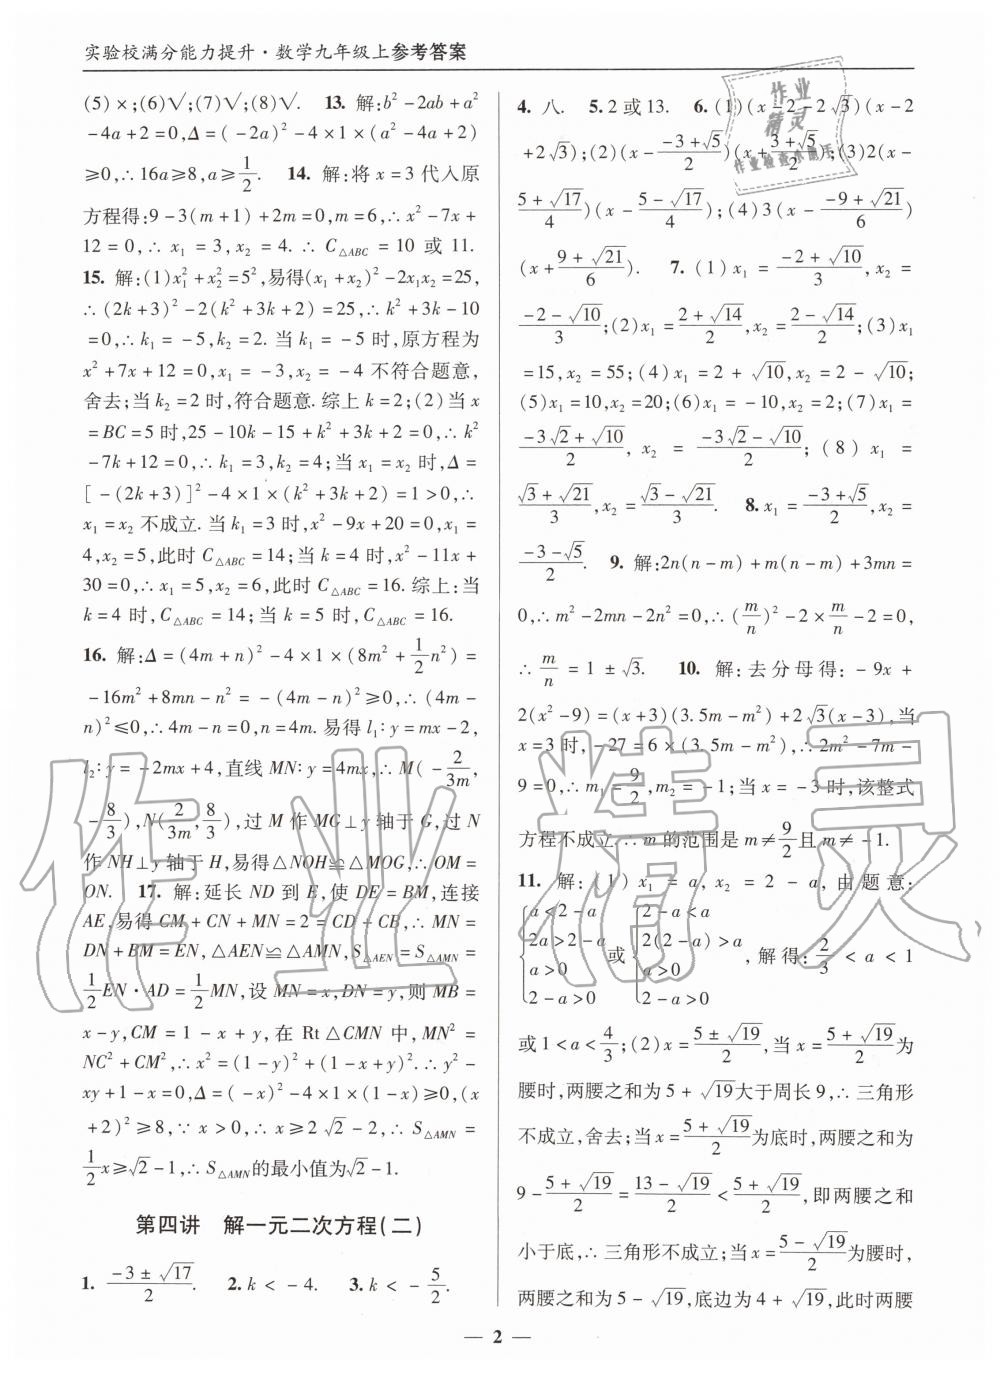 实验校满分能力提升·数学九年级上参考答案
(5)×;(6)√;(7)√;(8)√. 13. 解:b²-2ab+a²
-4a+2=0,Δ=(-2a)²-4×1×(a²-4a+2)
≥0,∴16a≥8,a≥1/2. 14. 解:将x=3代入原
方程得:9-3(m+1)+2m=0,m=6,∴x²-7x+
12=0,∴x₁=3,x₂=4.∴C△ABC=10或11.
15. 解:(1)x₁²+x₂²=5²,易得(x₁+x₂)²-2x₁x₂=25,
∴(2k+3)²-2(k²+3k+2)=25,∴k²+3k-10
=0,∴k₁=-5,k₂=2.当k₁=-5时,原方程为
x²+7x+12=0,x₁=-3,x₂=-4不符合题意,
舍去;当k₂=2时,符合题意.综上k=2;(2)当x
=BC=5时,25-10k-15+k²+3k+2=0,∴k²
-7k+12=0,∴k₁=3,k₂=4;当x₁=x₂时,Δ=
[-(2k+3)]²-4×1×(k²+3k+2)=1>0,∴
x₁=x₂不成立.当k₁=3时,x²-9x+20=0,x₁=
4,x₂=5,此时C△ABC=14;当k=4时,x²-11x+
30=0,∴x₁=5,x₂=6,此时C△ABC=16.综上:当
k=4时,C△ABC=14;当k=5时,C△ABC=16.
16. 解:Δ=(4m+n)²-4×1×(8m²+1/2n²)=
-16m²+8mn-n²=-(4m-n)²≥0,∴(4m-
n)²≤0,∴4m-n=0,n=4m.易得l₁:y=mx-2,
l₂:y=-2mx+4,直线MN:y=4mx,∴M(-2/3m,
-8/3),N(2/3m,8/3),过M作MG⊥y轴于G,过N
作NH⊥y轴于H,易得△NOH≌△MOG,∴OM=
ON. 17. 解:延长ND到E,使DE=BM,连接
AE,易得CM+CN+MN=2=CD+CB,∴MN=
DN+BM=EN,△AEN≌△AMN,S△AEN=S△AMN=
1/2EN·AD=1/2MN,设MN=x,DN=y,则MB=
x-y,CM=1-x+y,在Rt△CMN中,MN²=
NC²+CM²,∴x²=(1-y)²+(1-x+y)².∴y²-
xy+1-x=0,Δ=(-x)²-4×1×(1-x)≥0,(x
+2)²≥8,∵x>0,∴x≥2√2-2,∴S△AMN=
1/2x≥√2-1,∴S△AMN的最小值为√2-1.
第四讲 解一元二次方程(二)
1. (-3±√17)/2. 2. k<-4. 3. k<-5/2.
4. 八. 5. 2或13. 6. (1)(x-2-2√3)(x-2
+2√3);(2)(x-(-3+√5)/2)(x+(3+√5)/2);(3)2(x-
(5+√17)/4)(x-(5-√17)/4);(4)3(x-(-9+√21)/6)
(x+(9+√21)/6). 7. (1)x₁=(-2+√10)/3,x₂=
(-2-√10)/3;(2)x₁=(2+√14)/2,x₂=(2-√14)/2;(3)x₁
=15,x₂=55;(4)x₁=2+√10,x₂=2-√10;
(5)x₁=10,x₂=20;(6)x₁=-10,x₂=2;(7)x₁=
(-3√2+√10)/2,x₂=(-3√2-√10)/2;(8)x₁=
(√3+√21)/3,x₂=(√3-√21)/3. 8. x₁=(-3+√5)/2,x₂=
(-3-√5)/2. 9. 解:2n(n-m)+m(n-m)+3mn=
0,∴m²-2mn-2n²=0,∴(m/n)²-2×m/n-2=0,
∴m/n=1±√3. 10. 解:去分母得:-9x+
2(x²-9)=(x+3)(3.5m-m²)+2√3(x-3),当
x=3时,-27=6×(3.5m-m²),∴2m²-7m-
9=0,∴m₁=9/2,m₂=-1;当x=-3时,该整式
方程不成立.∴m的范围是m≠9/2且m≠-1.
11. 解:(1)x₁=a,x₂=2-a,由题意:
{a<2-a 2a>2-a a>0 2-a>0 或 {2-a<a 2(2-a)>a a>0 2-a>0,解得:2/3<a<1
或1<a<4/3;(2)x=(5±√19)/2,当x=(5+√19)/2为
腰时,两腰之和为5+√19大于周长9,∴三角形
不成立,舍去;当x=(5+√19)/2为底时,两腰之和为
9-(5+√19)/2=(13-√19)/2<(5+√19)/2,即两腰之和
小于底,∴三角形不成立;当x=(5-√19)/2为腰时,
两腰之和为5-√19,底边为4+√19,此时两腰
— 2 —
作业精灵
作业
精灵